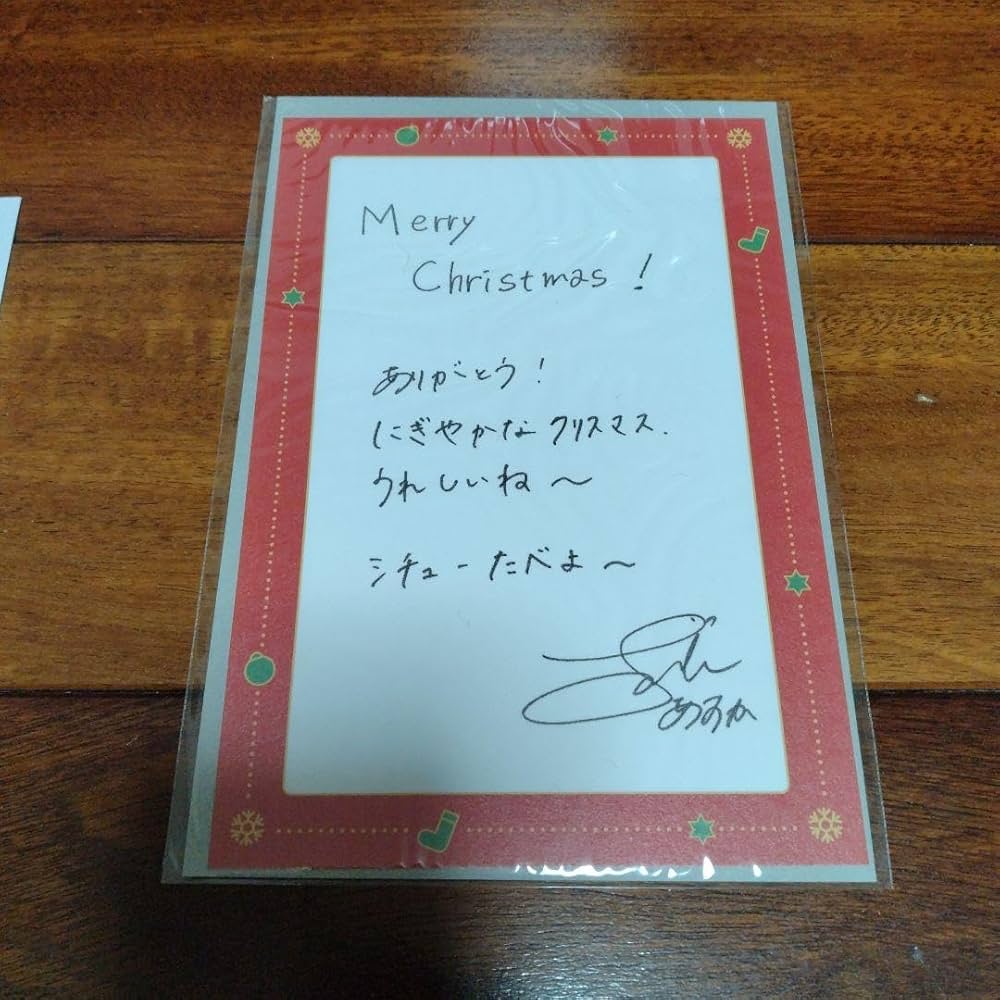 Merry
Christmas !
ありがとう！
にぎやかなクリスマス.
うれしいね〜
シチューたべよ〜
あすか